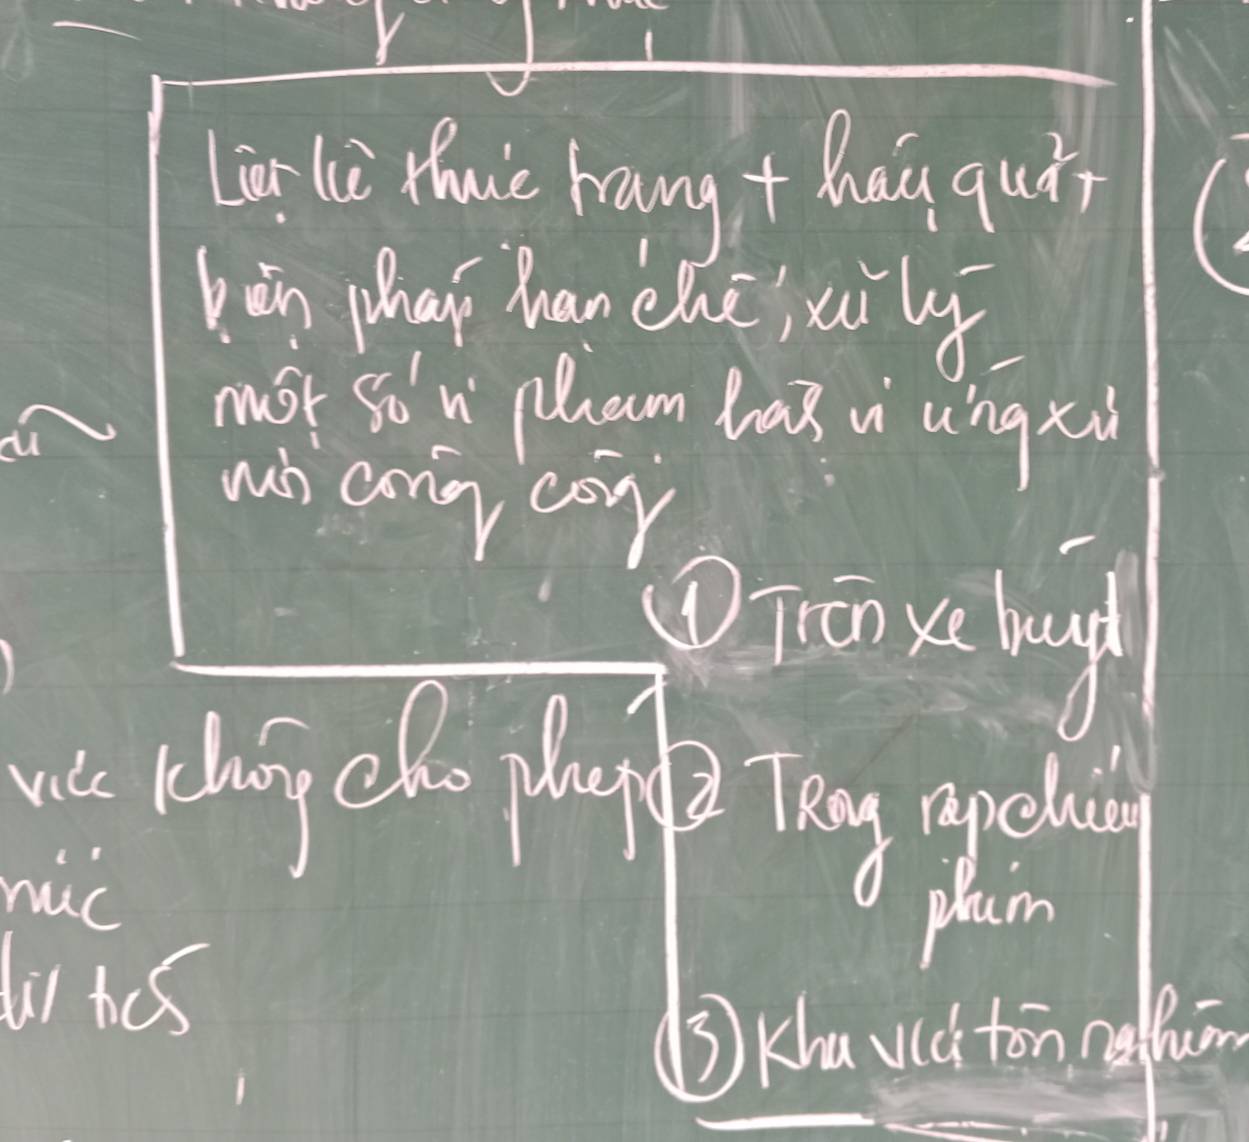 Liệt kê thực trạng + hậu quả +
biện pháp hạn chế, xử lý
một số vi phạm hành vi ứng xử
nơi công cộng
① Trên xe buýt
việc không cho phép
② Trong rạp chiếu
phim
mức
③ Khu vực tôn nghiêm